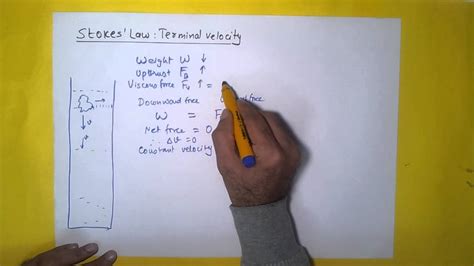 Stokes' Law : Terminal velocity
Weight W ↓
Upthrust F_B ↑
Viscous force F_v ↑ =
Downward force
W =
Net force = 0
∴ ΔV = 0
Constant velocity
v
v